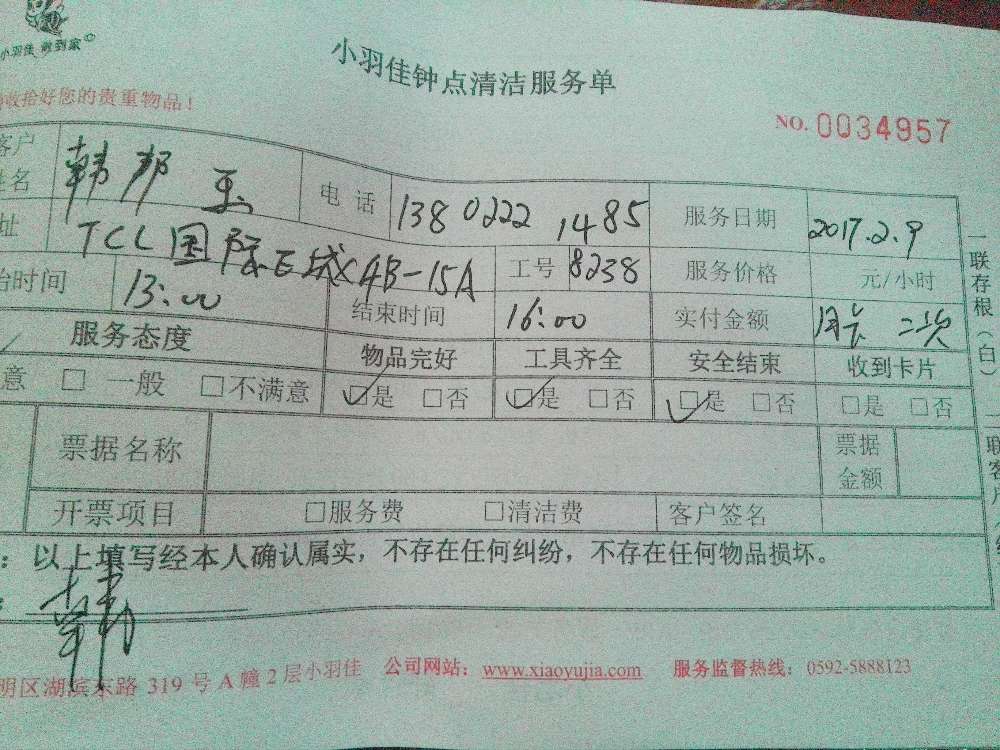 小羽佳 做到家©
小羽佳钟点清洁服务单
收拾好您的贵重物品！
NO. 0034957
客户姓名 韩邦玉 电话 13802221485 服务日期 2017.2.9
址 TCL国际E城 AB-15A 工号 8238 服务价格 元/小时
始时间 13:00 结束时间 16:00 实付金额 月卡 二次
服务态度 物品完好 工具齐全 安全结束 收到卡片
意 □一般 □不满意 ✓□是 □否 ✓□是 □否 ✓□是 □否 □是 □否
票据名称 票据金额
开票项目 □服务费 □清洁费 客户签名
：以上填写经本人确认属实，不存在任何纠纷，不存在任何物品损坏。
：韩
明区湖滨东路 319 号 A 幢 2 层小羽佳 公司网站：www.xiaoyujia.com 服务监督热线：0592-5888123
一联存根（白）